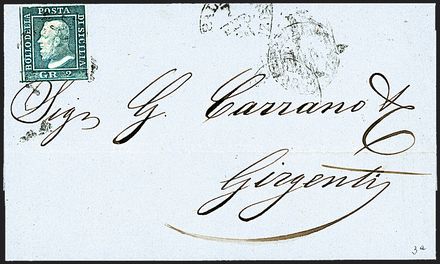 BOLLO DELLA POSTA DI SICILIA
GR. 2
Sig. G. Carrano & C
Girgenti
3a